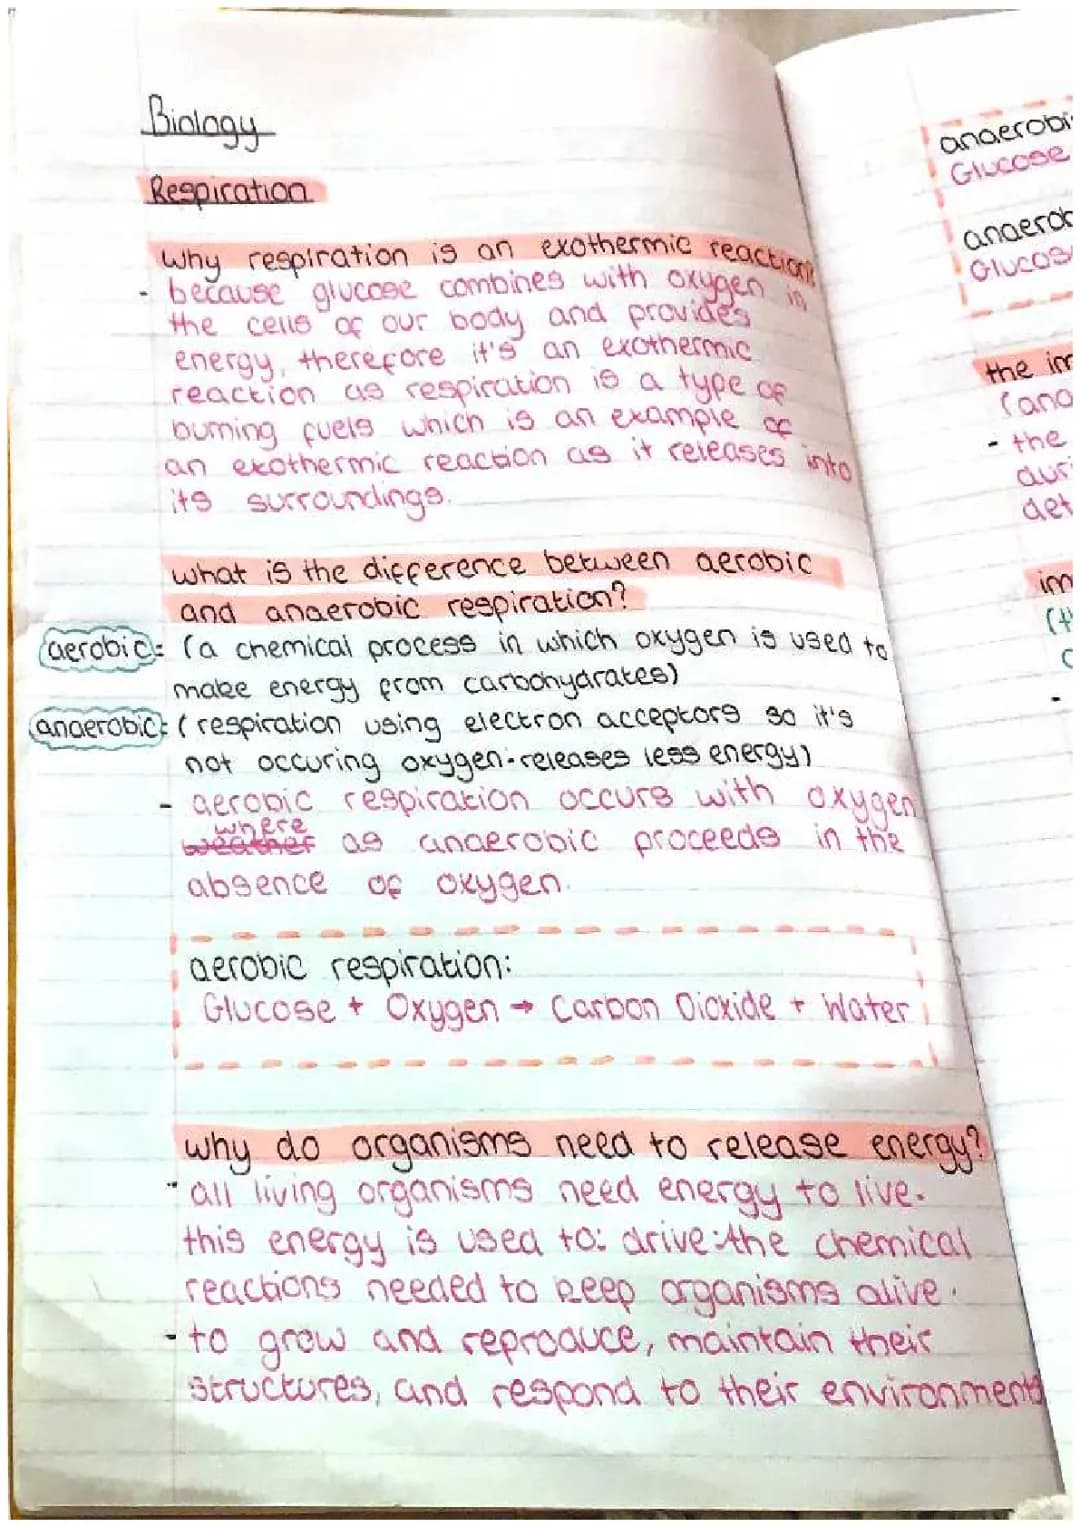 Biology
Respiration
why respiration is an exothermic reaction?
- because glucose combines with oxygen in
the cells of our body and provides
energy, therefore it's an exothermic
reaction as respiration is a type of
burning fuels which is an example of
an exothermic reaction as it releases into
its surroundings.
what is the difference between aerobic
and anaerobic respiration?
aerobic: (a chemical process in which oxygen is used to
make energy from carbohydrates)
anaerobic: (respiration using electron acceptors so it's
not occuring oxygen. releases less energy)
- aerobic respiration occurs with oxygen
where
weather as anaerobic proceeds in the
absence of oxygen.
aerobic respiration:
Glucose + Oxygen → Carbon Dioxide + Water
why do organisms need to release energy?
- all living organisms need energy to live.
this energy is used to: drive the chemical
reactions needed to keep organisms alive.
- to grow and reproduce, maintain their
structures, and respond to their environments
anaerobi
Glucose
anaerob
Glucos
the im
(ana
- the
duri
det
im
(th